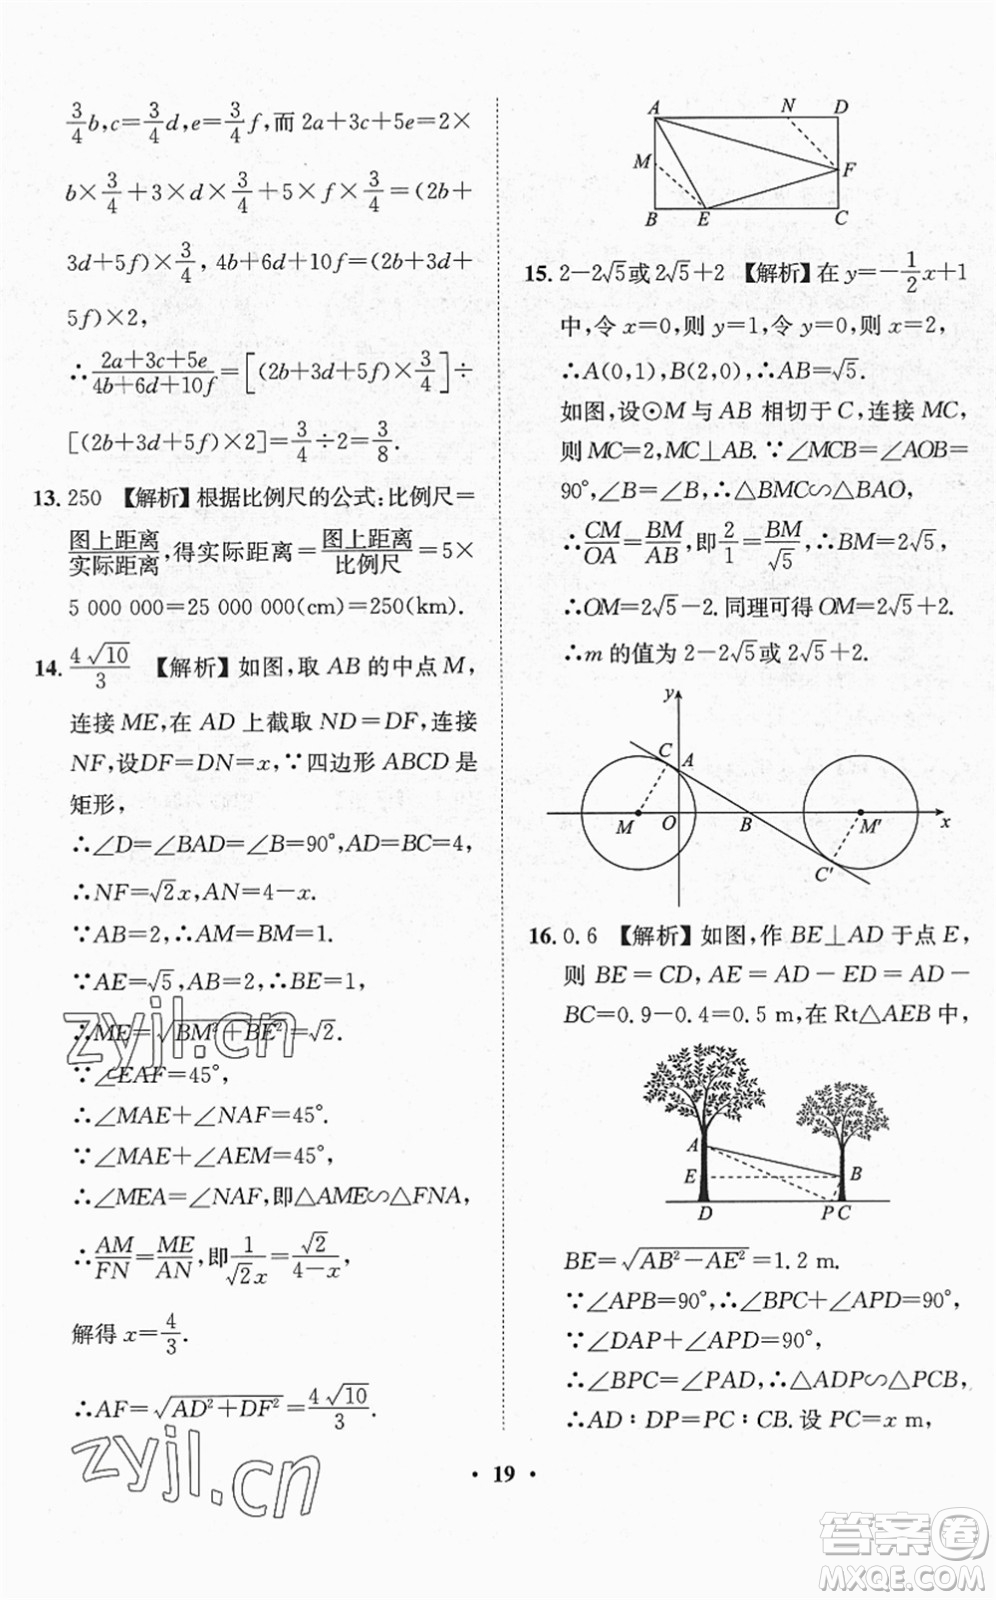 3/4 b,c=3/4 d,e=3/4 f,而2a+3c+5e=2×
b×3/4+3×d×3/4+5×f×3/4=(2b+
3d+5f)×3/4,4b+6d+10f=(2b+3d+
5f)×2,
∴(2a+3c+5e)/(4b+6d+10f)=[(2b+3d+5f)×3/4]÷
[(2b+3d+5f)×2]=3/4÷2=3/8.
13.250 【解析】根据比例尺的公式:比例尺=
图上距离/实际距离,得实际距离=图上距离/比例尺=5×
5 000 000=25 000 000(cm)=250(km).
14.4√10/3 【解析】如图,取AB的中点M,
连接ME,在AD上截取ND=DF,连接
NF,设DF=DN=x,∵四边形ABCD是
矩形,
∴∠D=∠BAD=∠B=90°,AD=BC=4,
∴NF=√2x,AN=4-x.
∵AB=2,∴AM=BM=1.
∵AE=√5,AB=2,∴BE=1,
∴ME=√(BM²+BE²)=√2.
∵∠EAF=45°,
∴∠MAE+∠NAF=45°.
∵∠MAE+∠AEM=45°,
∴∠MEA=∠NAF,即△AME∽△FNA,
∴AM/FN=ME/AN,即1/(√2x)=√2/(4-x),
解得x=4/3.
∴AF=√(AD²+DF²)=4√10/3.
A N D
M F
B E C
15.2-2√5或2√5+2 【解析】在y=-1/2x+1
中,令x=0,则y=1,令y=0,则x=2,
∴A(0,1),B(2,0),∴AB=√5.
如图,设⊙M与AB相切于C,连接MC,
则MC=2,MC⊥AB.∵∠MCB=∠AOB=
90°,∠B=∠B,∴△BMC∽△BAO,
∴CM/OA=BM/AB,即2/1=BM/√5,∴BM=2√5,
∴OM=2√5-2.同理可得OM=2√5+2.
∴m的值为2-2√5或2√5+2.
y
C A
M O B M′ x
C′
16.0.6 【解析】如图,作BE⊥AD于点E,
则BE=CD,AE=AD-ED=AD-
BC=0.9-0.4=0.5 m,在Rt△AEB中,
A
E B
D P C
BE=√(AB²-AE²)=1.2 m.
∵∠APB=90°,∴∠BPC+∠APD=90°,
∵∠DAP+∠APD=90°,
∴∠BPC=∠DAP,∴△ADP∽△PCB,
∴AD∶DP=PC∶CB.设PC=x m,
• 19 •
zyjl.cn
zyjl.cn
答案卷
MXQE.COM